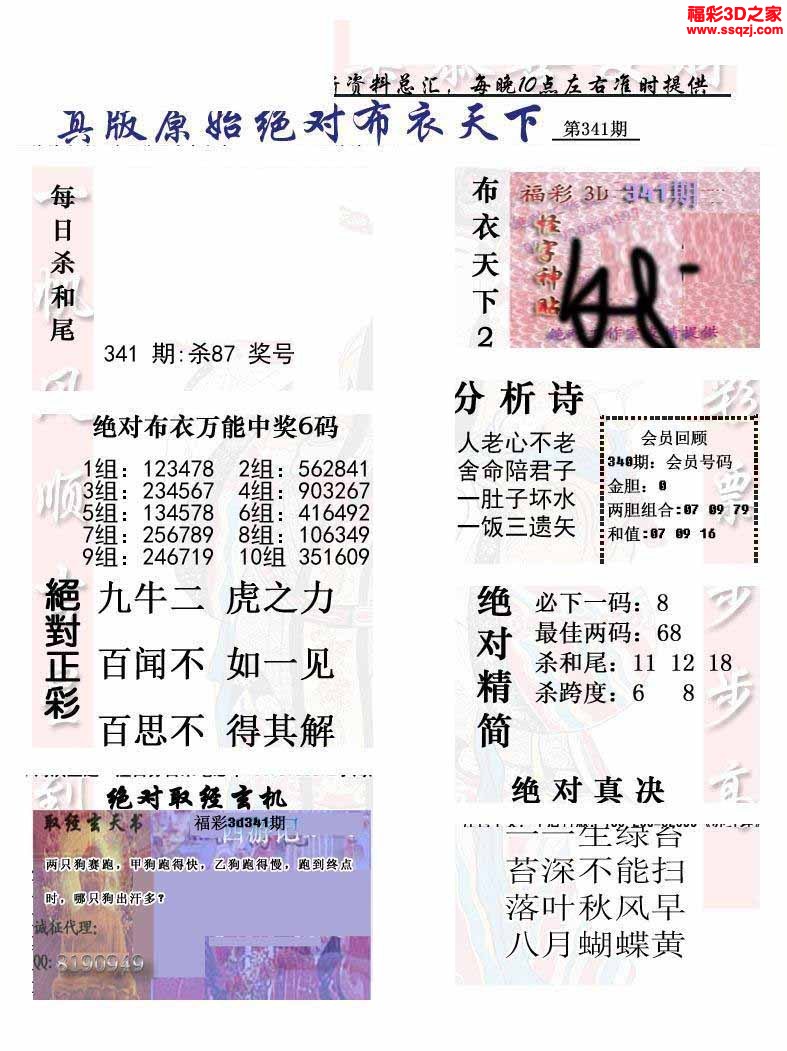 福彩3D之家
www.ssqzj.com
资料总汇，每晚10点左右准时提供
真版原始绝对布衣天下
第341期
每日杀和尾
341 期:杀87 奖号
布衣天下2
福彩 3D 341期
怪字神贴
绝对布衣万能中奖6码
1组：123478 2组：562841
3组：234567 4组：903267
5组：134578 6组：416492
7组：256789 8组：106349
9组：246719 10组 351609
絕對正彩
九牛二 虎之力
百闻不 如一见
百思不 得其解
分析诗
人老心不老
舍命陪君子
一肚子坏水
一饭三遗矢
会员回顾
340期：会员号码
金胆：0
两胆组合:07 09 79
和值:07 09 16
绝对精简
必下一码：8
最佳两码：68
杀和尾：11 12 18
杀跨度：6 8
绝对取经玄机
取经玄天书
福彩3d341期
西游记
两只狗赛跑，甲狗跑得快，乙狗跑得慢，跑到终点
时，哪只狗出汗多？
诚征代理：
QQ: 8190949
绝对真决
一一生绿苔
苔深不能扫
落叶秋风早
八月蝴蝶黄